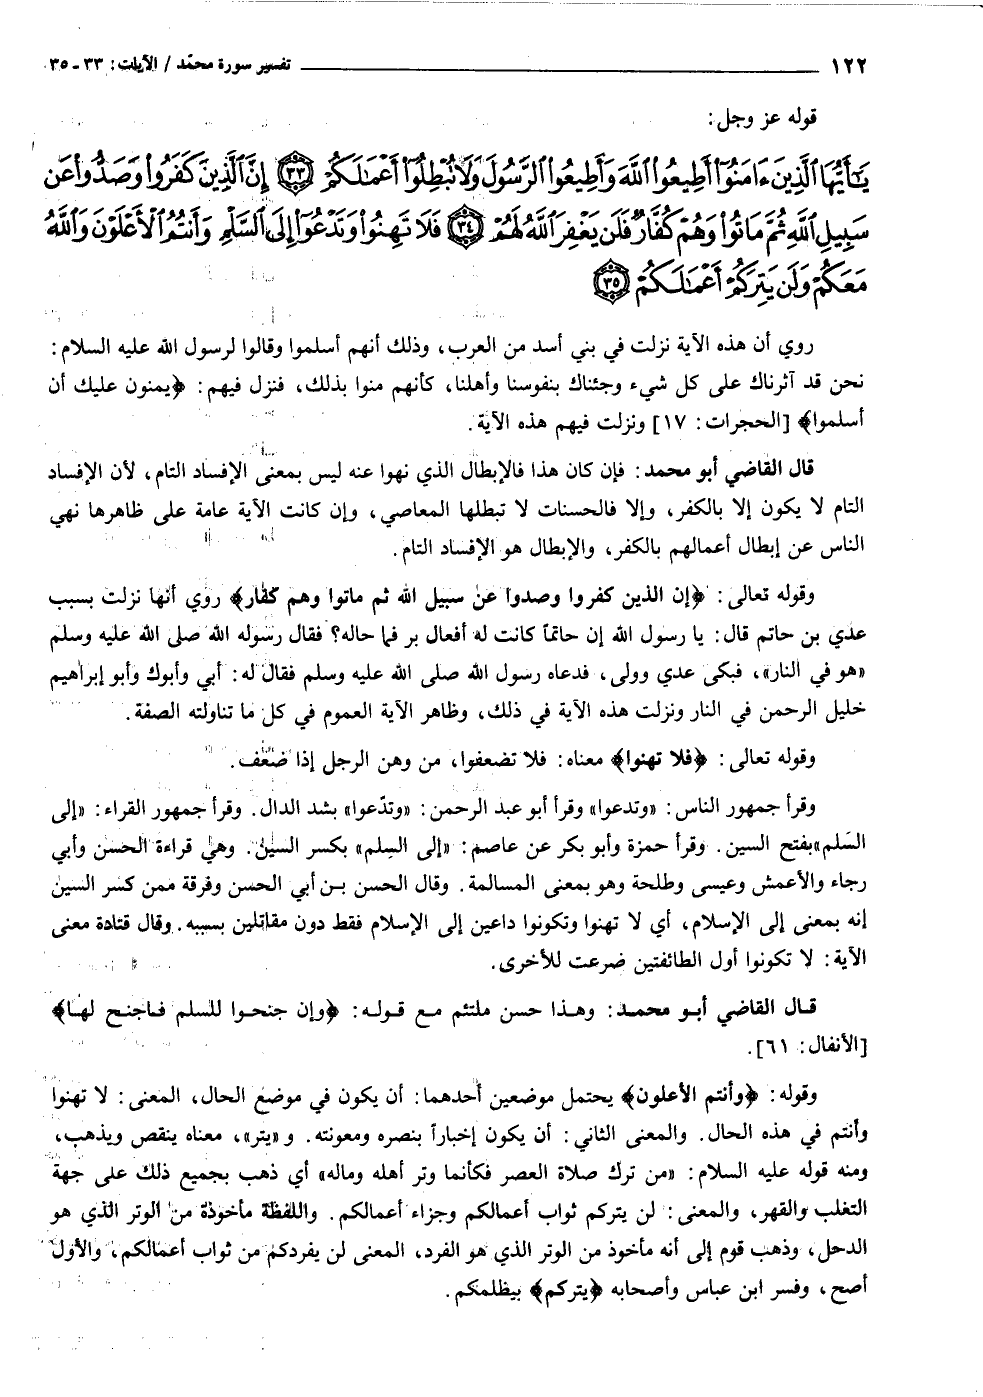 ١٢٢ ــــــ تفسير سورة محمّد / الآيات: ٣٣ ـ ٣٥
قوله عز وجل:
يَٰٓأَيُّهَا ٱلَّذِينَ ءَامَنُوٓا۟ أَطِيعُوا۟ ٱللَّهَ وَأَطِيعُوا۟ ٱلرَّسُولَ وَلَا تُبْطِلُوٓا۟ أَعْمَٰلَكُمْ ٣٣ إِنَّ ٱلَّذِينَ كَفَرُوا۟ وَصَدُّوا۟ عَن
سَبِيلِ ٱللَّهِ ثُمَّ مَاتُوا۟ وَهُمْ كُفَّارٌ فَلَن يَغْفِرَ ٱللَّهُ لَهُمْ ٣٤ فَلَا تَهِنُوا۟ وَتَدْعُوٓا۟ إِلَى ٱلسَّلْمِ وَأَنتُمُ ٱلْأَعْلَوْنَ وَٱللَّهُ
مَعَكُمْ وَلَن يَتِرَكُمْ أَعْمَٰلَكُمْ ٣٥
روي أن هذه الآية نزلت في بني أسد من العرب، وذلك أنهم أسلموا وقالوا لرسول الله عليه السلام:
نحن قد آثرناك على كل شيء وجئناك بنفوسنا وأهلنا، كأنهم منوا بذلك، فنزل فيهم: ﴿يمنون عليك أن
أسلموا﴾ [الحجرات: ١٧] ونزلت فيهم هذه الآية.
قال القاضي أبو محمد: فإن كان هذا فالإبطال الذي نهوا عنه ليس بمعنى الإفساد التام، لأن الإفساد
التام لا يكون إلا بالكفر، وإلا فالحسنات لا تبطلها المعاصي، وإن كانت الآية عامة على ظاهرها نهي
الناس عن إبطال أعمالهم بالكفر، والإبطال هو الإفساد التام.
وقوله تعالى: ﴿إن الذين كفروا وصدوا عن سبيل الله ثم ماتوا وهم كفار﴾ روي أنها نزلت بسبب
عدي بن حاتم قال: يا رسول الله إن حاتماً كانت له أفعال بر فما حاله؟ فقال رسوله الله صلى الله عليه وسلم
«هو في النار»، فبكى عدي وولى، فدعاه رسول الله صلى الله عليه وسلم فقال له: أبي وأبوك وأبو إبراهيم
خليل الرحمن في النار ونزلت هذه الآية في ذلك، وظاهر الآية العموم في كل ما تناولته الصفة.
وقوله تعالى: ﴿فلا تهنوا﴾ معناه: فلا تضعفوا، من وهن الرجل إذا ضعُف.
وقرأ جمهور الناس: «وتدعوا» وقرأ أبو عبد الرحمن: «وتدّعوا» بشد الدال. وقرأ جمهور القراء: «إلى
السَلم» بفتح السين. وقرأ حمزة وأبو بكر عن عاصم: «إلى السِلم» بكسر السين. وهي قراءة الحسن وأبي
رجاء والأعمش وعيسى وطلحة وهو بمعنى المسالمة. وقال الحسن بن أبي الحسن وفرقة ممن كسر السين
إنه بمعنى إلى الإسلام، أي لا تهنوا وتكونوا داعين إلى الإسلام فقط دون مقاتلين بسببه. وقال قتادة معنى
الآية: لا تكونوا أول الطائفتين ضرعت للأخرى.
قال القاضي أبو محمد: وهذا حسن ملتئم مع قوله: ﴿وإن جنحوا للسلم فاجنح لها﴾
[الأنفال: ٦١].
وقوله: ﴿وأنتم الأعلون﴾ يحتمل موضعين أحدهما: أن يكون في موضع الحال، المعنى: لا تهنوا
وأنتم في هذه الحال. والمعنى الثاني: أن يكون إخباراً بنصره ومعونته. و«يتر»، معناه ينقص ويذهب،
ومنه قوله عليه السلام: «من ترك صلاة العصر فكأنما وتر أهله وماله» أي ذهب بجميع ذلك على جهة
التغلب والقهر، والمعنى: لن يتركم ثواب أعمالكم وجزاء أعمالكم. واللفظة مأخوذة من الوتر الذي هو
الدحل، وذهب قوم إلى أنه مأخوذ من الوتر الذي هو الفرد، المعنى لن يفردكم من ثواب أعمالكم، والأول
أصح، وفسر ابن عباس وأصحابه ﴿يتركم﴾ بيظلمكم.